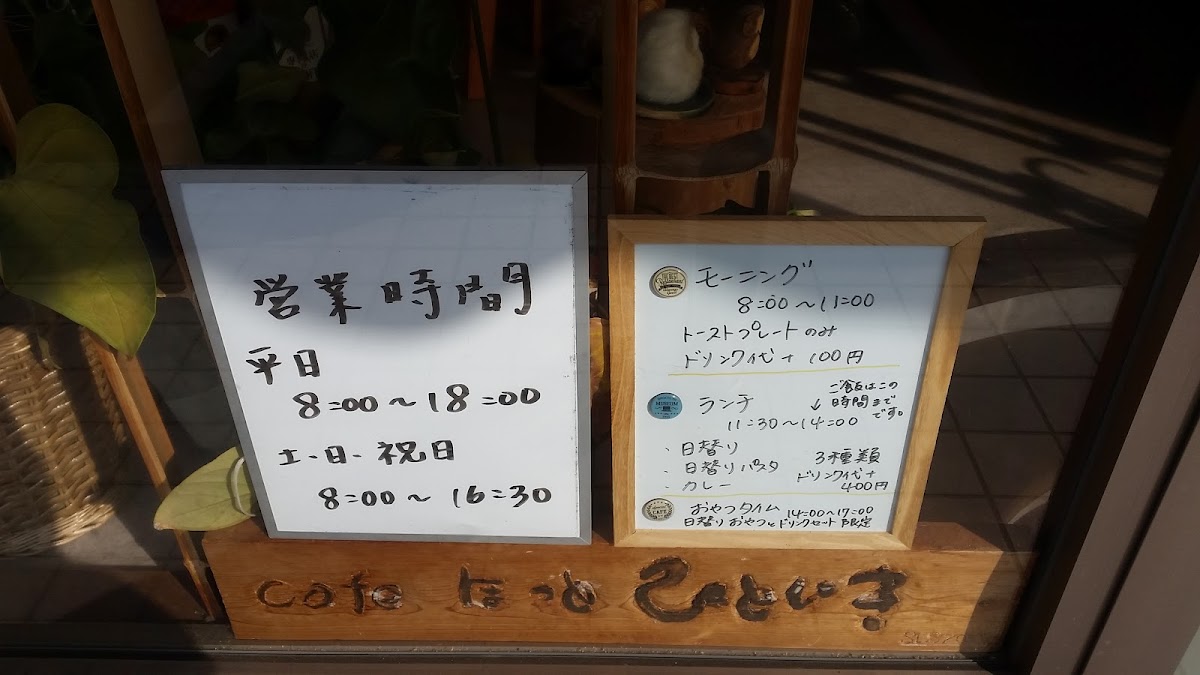 営業時間
平日
8:00～18:00
土・日・祝日
8:00～16:30
モーニング
8:00～11:00
トーストプレートのみ
ドリンク代+100円
ランチ
ご飯はこの
↓時間まで
です。
11:30～14:00
・日替り
・日替りパスタ
・カレー
3種類
ドリンク代+
400円
おやつタイム 14:00～17:00
日替りおやつとドリンクセット限定
cafe ほっとひといき